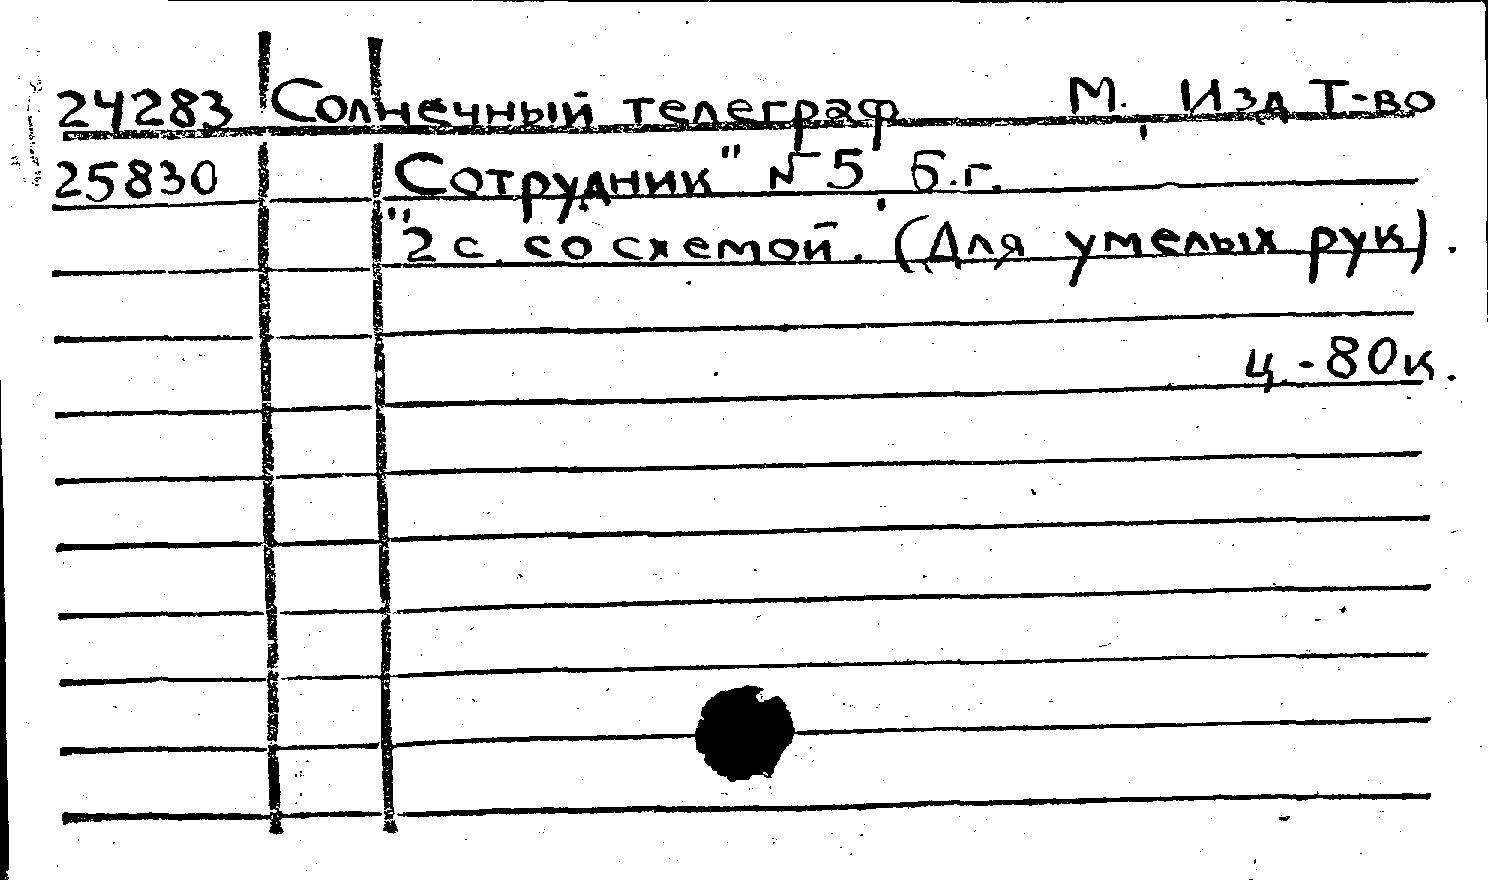 24283 Солнечный телеграф М. Изд Т-во
25830 "Сотрудник" №5 б.г.
2 с. со схемой. (Для умелых рук).
ц.-80к.